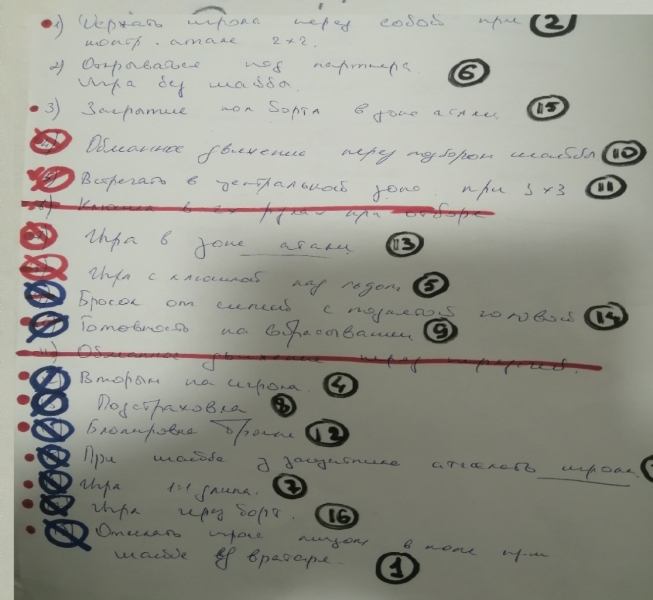 1) Держать игрока перед собой при 2
контр. атаке 2х2.
2) Открываться под партнера. 6
Игра без шайбы.
3) Закрытие пол борта в зоне атаки 15
Обманное движение перед подбором шайбы 10
Встречать в центральной зоне при 3х3 11
Клюшка в 2х руках при отборе
Игра в зоне атаки 13
Игра с клюшкой над льдом 5
Бросок от синей с поднятой головой 14
Готовность на вбрасывании 9
11) Обманное движение перед передачей.
Вторым на игрока. 4
Подстраховка 8
Блокировка броска 12
При шайбе у защитника отсекать игрока
Игра 1х1 длина. 7
Игра через борт. 16
Отсекать игрок лицом в поле при
шайбе у вратаря. 1